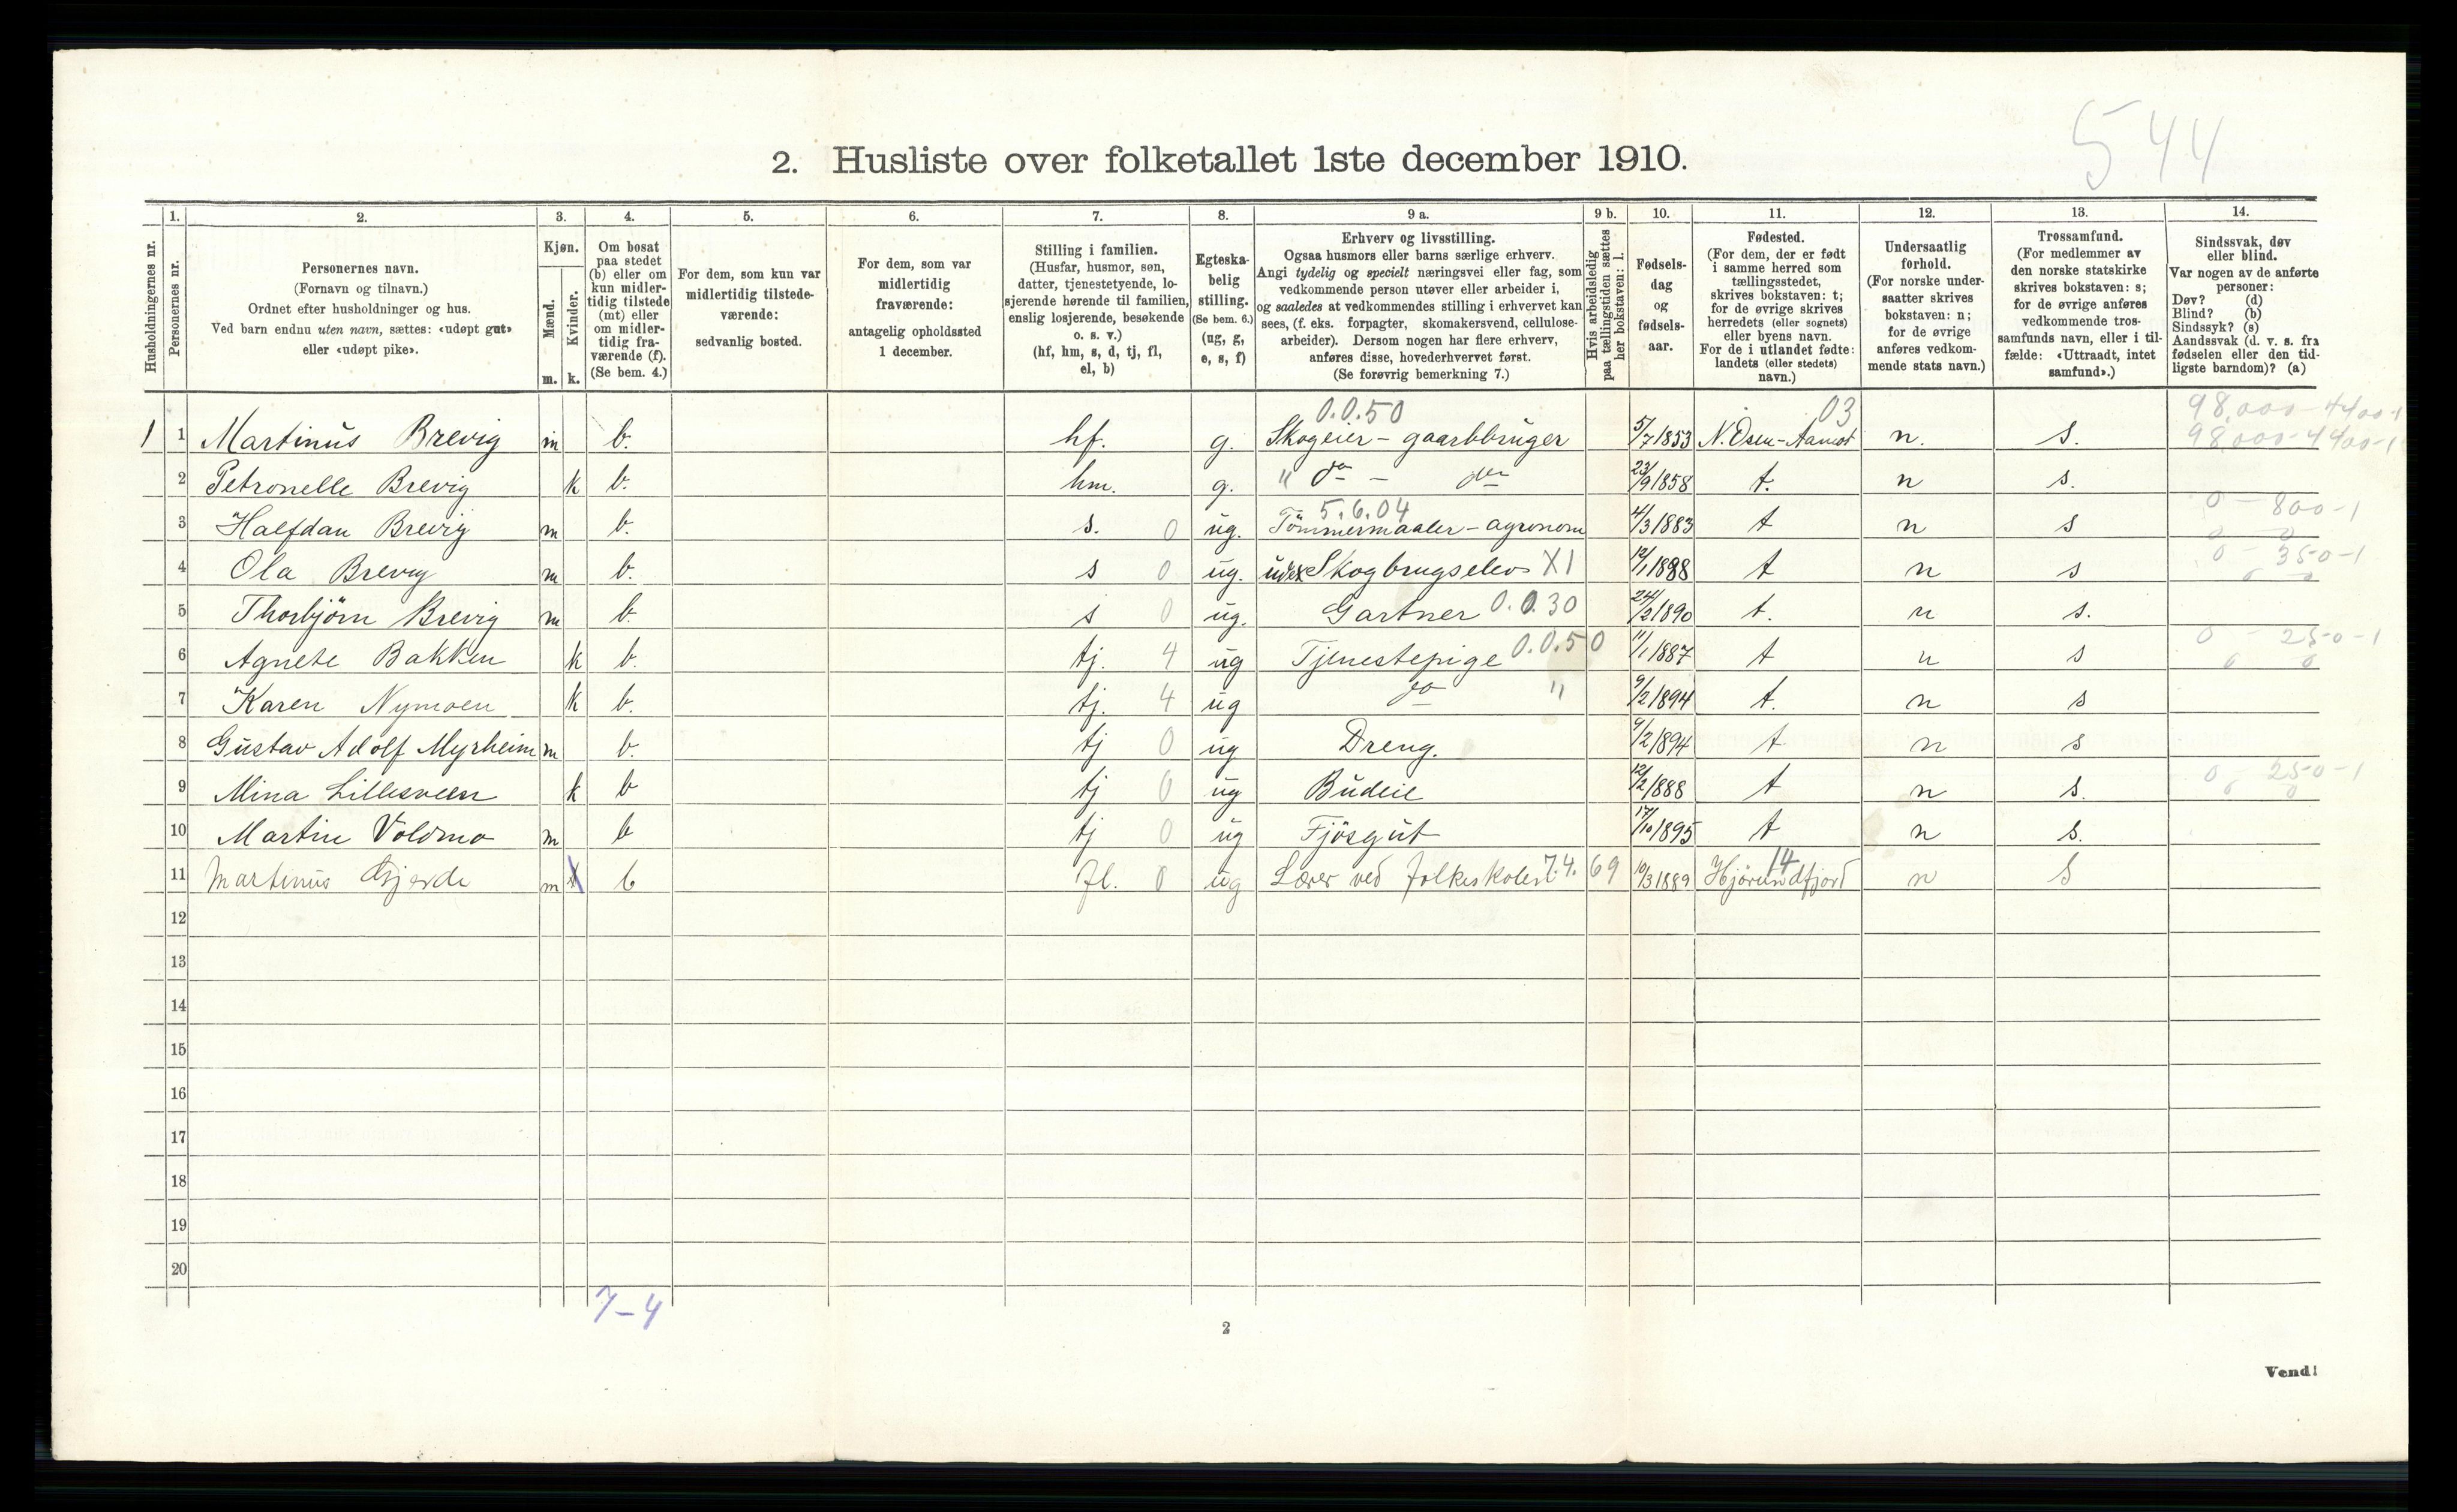 544
2. Husliste over folketallet 1ste december 1910.
Husholdningernes nr.
1. Personernes nr.
2. Personernes navn.
(Fornavn og tilnavn.)
Ordnet efter husholdninger og hus.
Ved barn endnu uten navn, sættes: «udøpt gut»
eller «udøpt pike».
3. Kjøn.
Mænd. m.
Kvinder. k.
4. Om bosat
paa stedet
(b) eller om
kun midler-
tidig tilstede
(mt) eller
om midler-
tidig fra-
værende (f).
(Se bem. 4.)
5. For dem, som kun var
midlertidig tilstede-
værende:
sedvanlig bosted.
6. For dem, som var
midlertidig
fraværende:
antagelig opholdssted
1 december.
7. Stilling i familien.
(Husfar, husmor, søn,
datter, tjenestetyende, lo-
sjerende hørende til familien,
enslig losjerende, besøkende
o. s. v.)
(hf, hm, s, d, tj, fl,
el, b)
8. Egteska-
belig
stilling.
(Se bem. 6.)
(ug, g,
e, s, f)
9 a. Erhverv og livsstilling.
Ogsaa husmors eller barns særlige erhverv.
Angi tydelig og specielt næringsvei eller fag, som
vedkommende person utøver eller arbeider i,
og saaledes at vedkommendes stilling i erhvervet kan
sees, (f. eks. forpagter, skomakersvend, cellulose-
arbeider). Dersom nogen har flere erhverv,
anføres disse, hovederhvervet først.
(Se forøvrig bemerkning 7.)
9 b. Hvis arbeidsledig
paa tællingstiden sættes
her bokstaven: l.
10. Fødsels-
dag
og
fødsels-
aar.
11. Fødested.
(For dem, der er født
i samme herred som
tællingsstedet,
skrives bokstaven: t;
for de øvrige skrives
herredets (eller sognets)
eller byens navn.
For de i utlandet fødte:
landets (eller stedets)
navn.)
12. Undersaatlig
forhold.
(For norske under-
saatter skrives
bokstaven: n;
for de øvrige
anføres vedkom-
mende stats navn.)
13. Trossamfund.
(For medlemmer av
den norske statskirke
skrives bokstaven: s;
for de øvrige anføres
vedkommende tros-
samfunds navn, eller i til-
fælde: «Uttraadt, intet
samfund».)
14. Sindssvak, døv
eller blind.
Var nogen av de anførte
personer:
Døv? (d)
Blind? (b)
Sindssyk? (s)
Aandssvak (d. v. s. fra
fødselen eller den tid-
ligste barndom)? (a)
0.0.50 03 98.000-4400-1
1 1 Martinus Brevig m b. hf. g. Skogeier - gaardbruger 5/7 1853 N. Osen-Aamot n. s. 98.000-4400-1
2 Petronelle Brevig k b. hm. g. " do - do 23/9 1858 t. n s.
5.6.04 0 - 800-1
3 Halfdan Brevig m b. s. 0 ug. Tömmermaaler - agronom 4/3 1883 t n s 0 0
4 Ola Brevig m b. s 0 ug. Skogbrugselev X1 12/1 1888 t n s 0 - 350-1 0 0
5 Thorbjörn Brevig m b. s 0 ug. Gartner 0.0.30 24/2 1890 t. n s.
6 Agnete Bakken k b. tj. 4 ug Tjenestepige 0.0.50 11/1 1887 t n s 0 - 250-1 0 0
7 Karen Nymoen k b. tj. 4 ug do " 9/2 1894 t. n s
8 Gustav Adolf Myrheim m b. tj 0 ug Dreng. 9/2 1894 t n s
9 Mina Lillesveen k b tj 0 ug Budeie 12/2 1888 t n s. 0 250-1 0 0
10 Martin Voldmo m b tj 0 ug Fjösgut 17/10 1895 t n s.
11 Martinus Gjerde m b fl. 0 ug Lærer ved folkeskolen 7.4.69 10/3 1889 Hjörundfjord 14 n s
12
13
14
15
16
17
18
19
20
7-4
2
Vend!